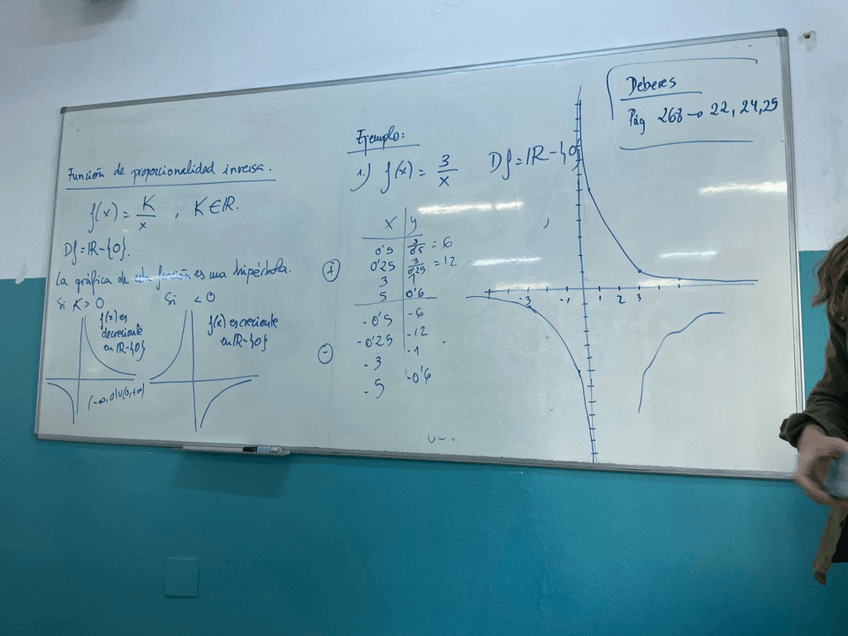 Función de proporcionalidad inversa.
f(x) = K/x , K∈ℝ.
Df = ℝ - {0}.
La gráfica de función es una hipérbola.
Si K > 0
Si < 0
f(x) es
decreciente
en ℝ-{0}
(-∞,0)∪(0,+∞)
f(x) es creciente
en ℝ-{0}
Ejemplo:
1) f(x) = 3/x Df = ℝ - {0}
x y
0'5 3/0'5 = 6
0'25 3/0'25 = 12
3 1
5 0'6
(+)
-0'5 -6
-0'25 -12
-3 -1
-5 -0'6
(-)
-3 -1 1 2 3
Deberes
Pág 268 → 22, 24, 25